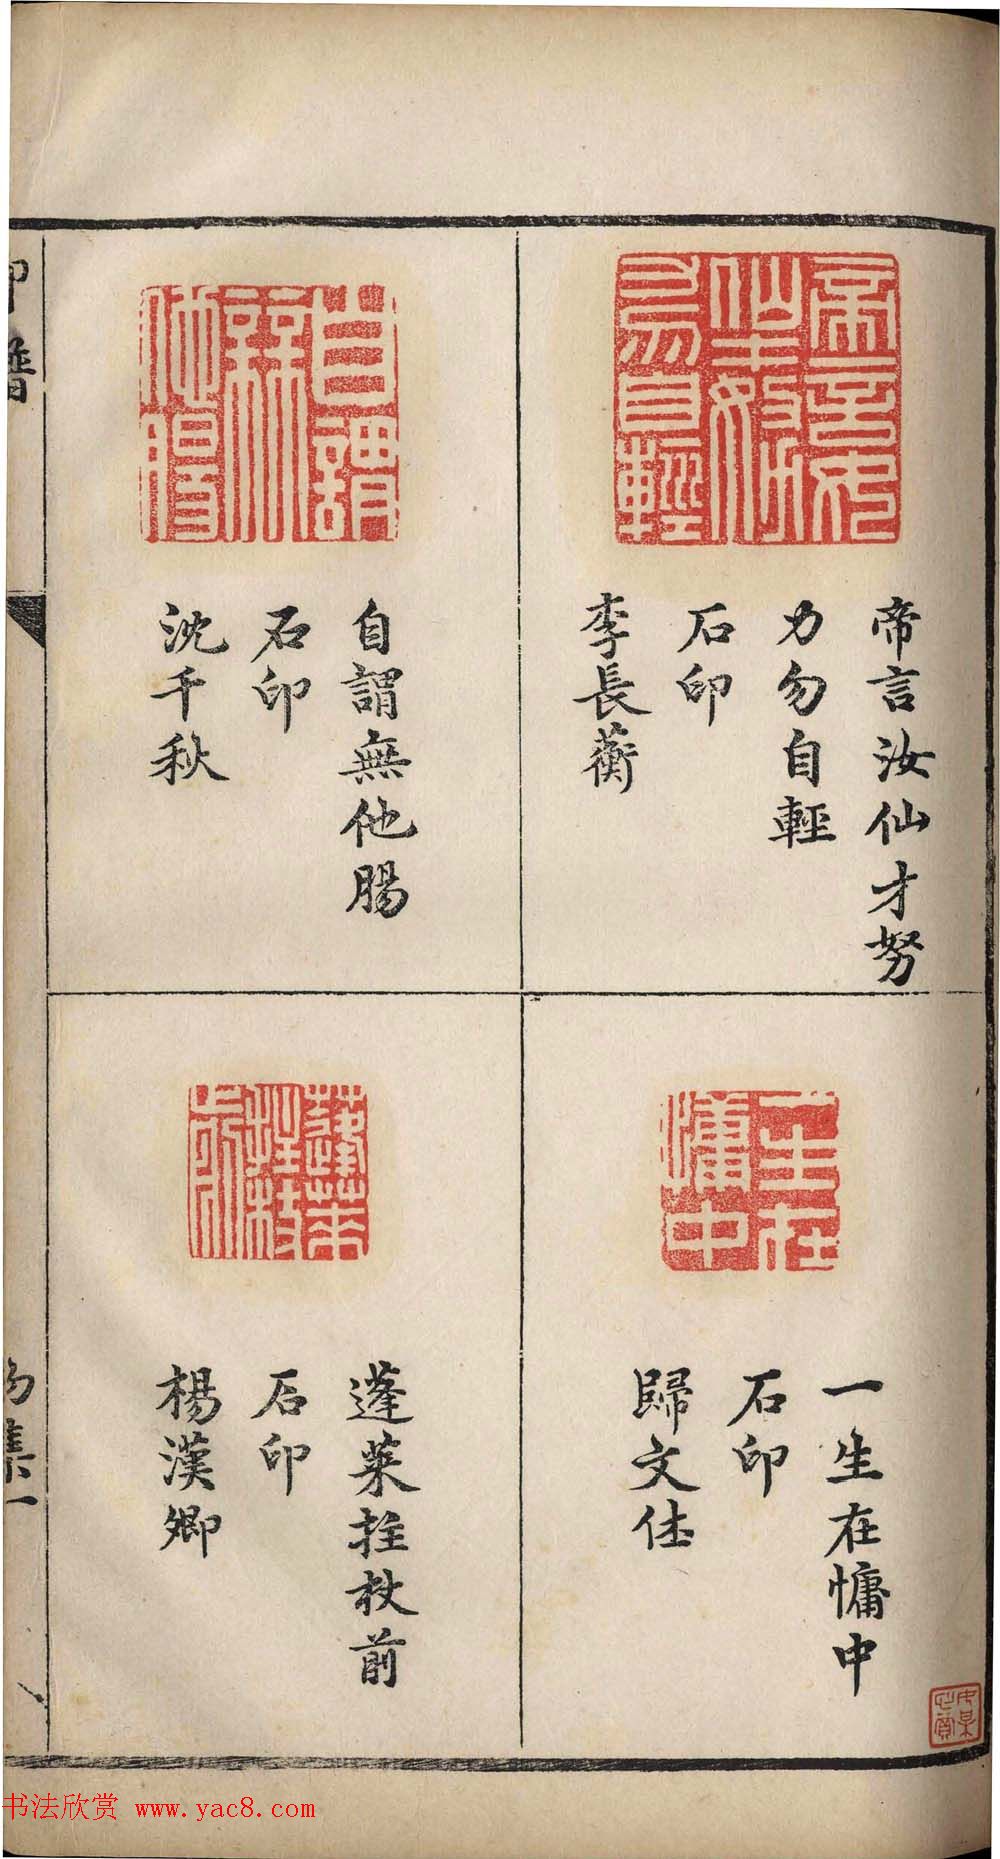 帝言汝仙才努
力勿自輕
石印
李長蘅
自謂無他腸
石印
沈千秋
一生在慵中
石印
歸文休
蓬萊拄杖前
石印
楊漢卿
印譜
集一
书法欣赏 www.yac8.com